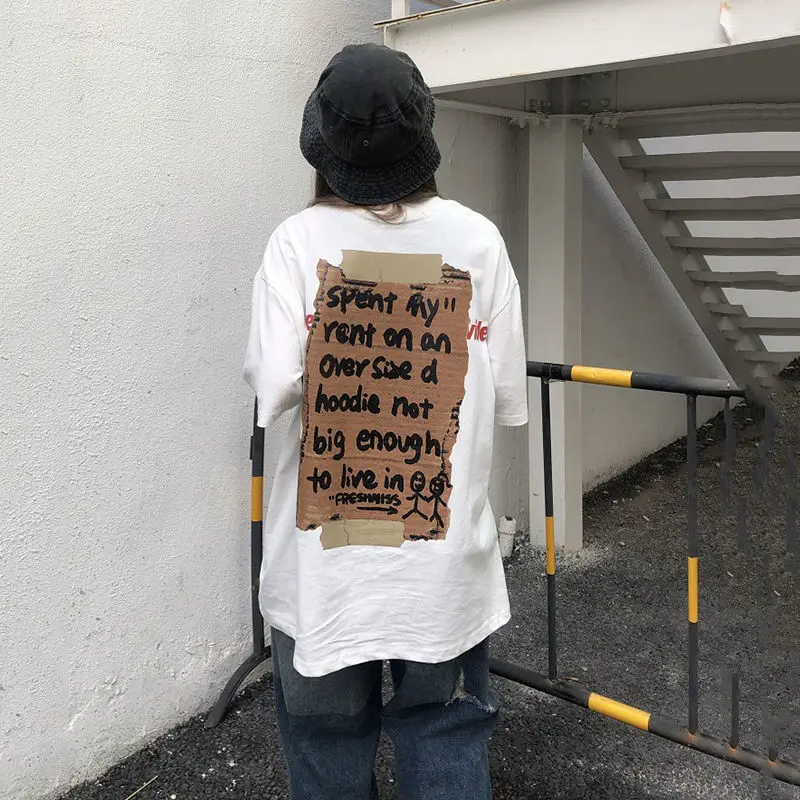 spent my"
rent on an
oversized
hoodie not
big enough
to live in
"FRESHNISS